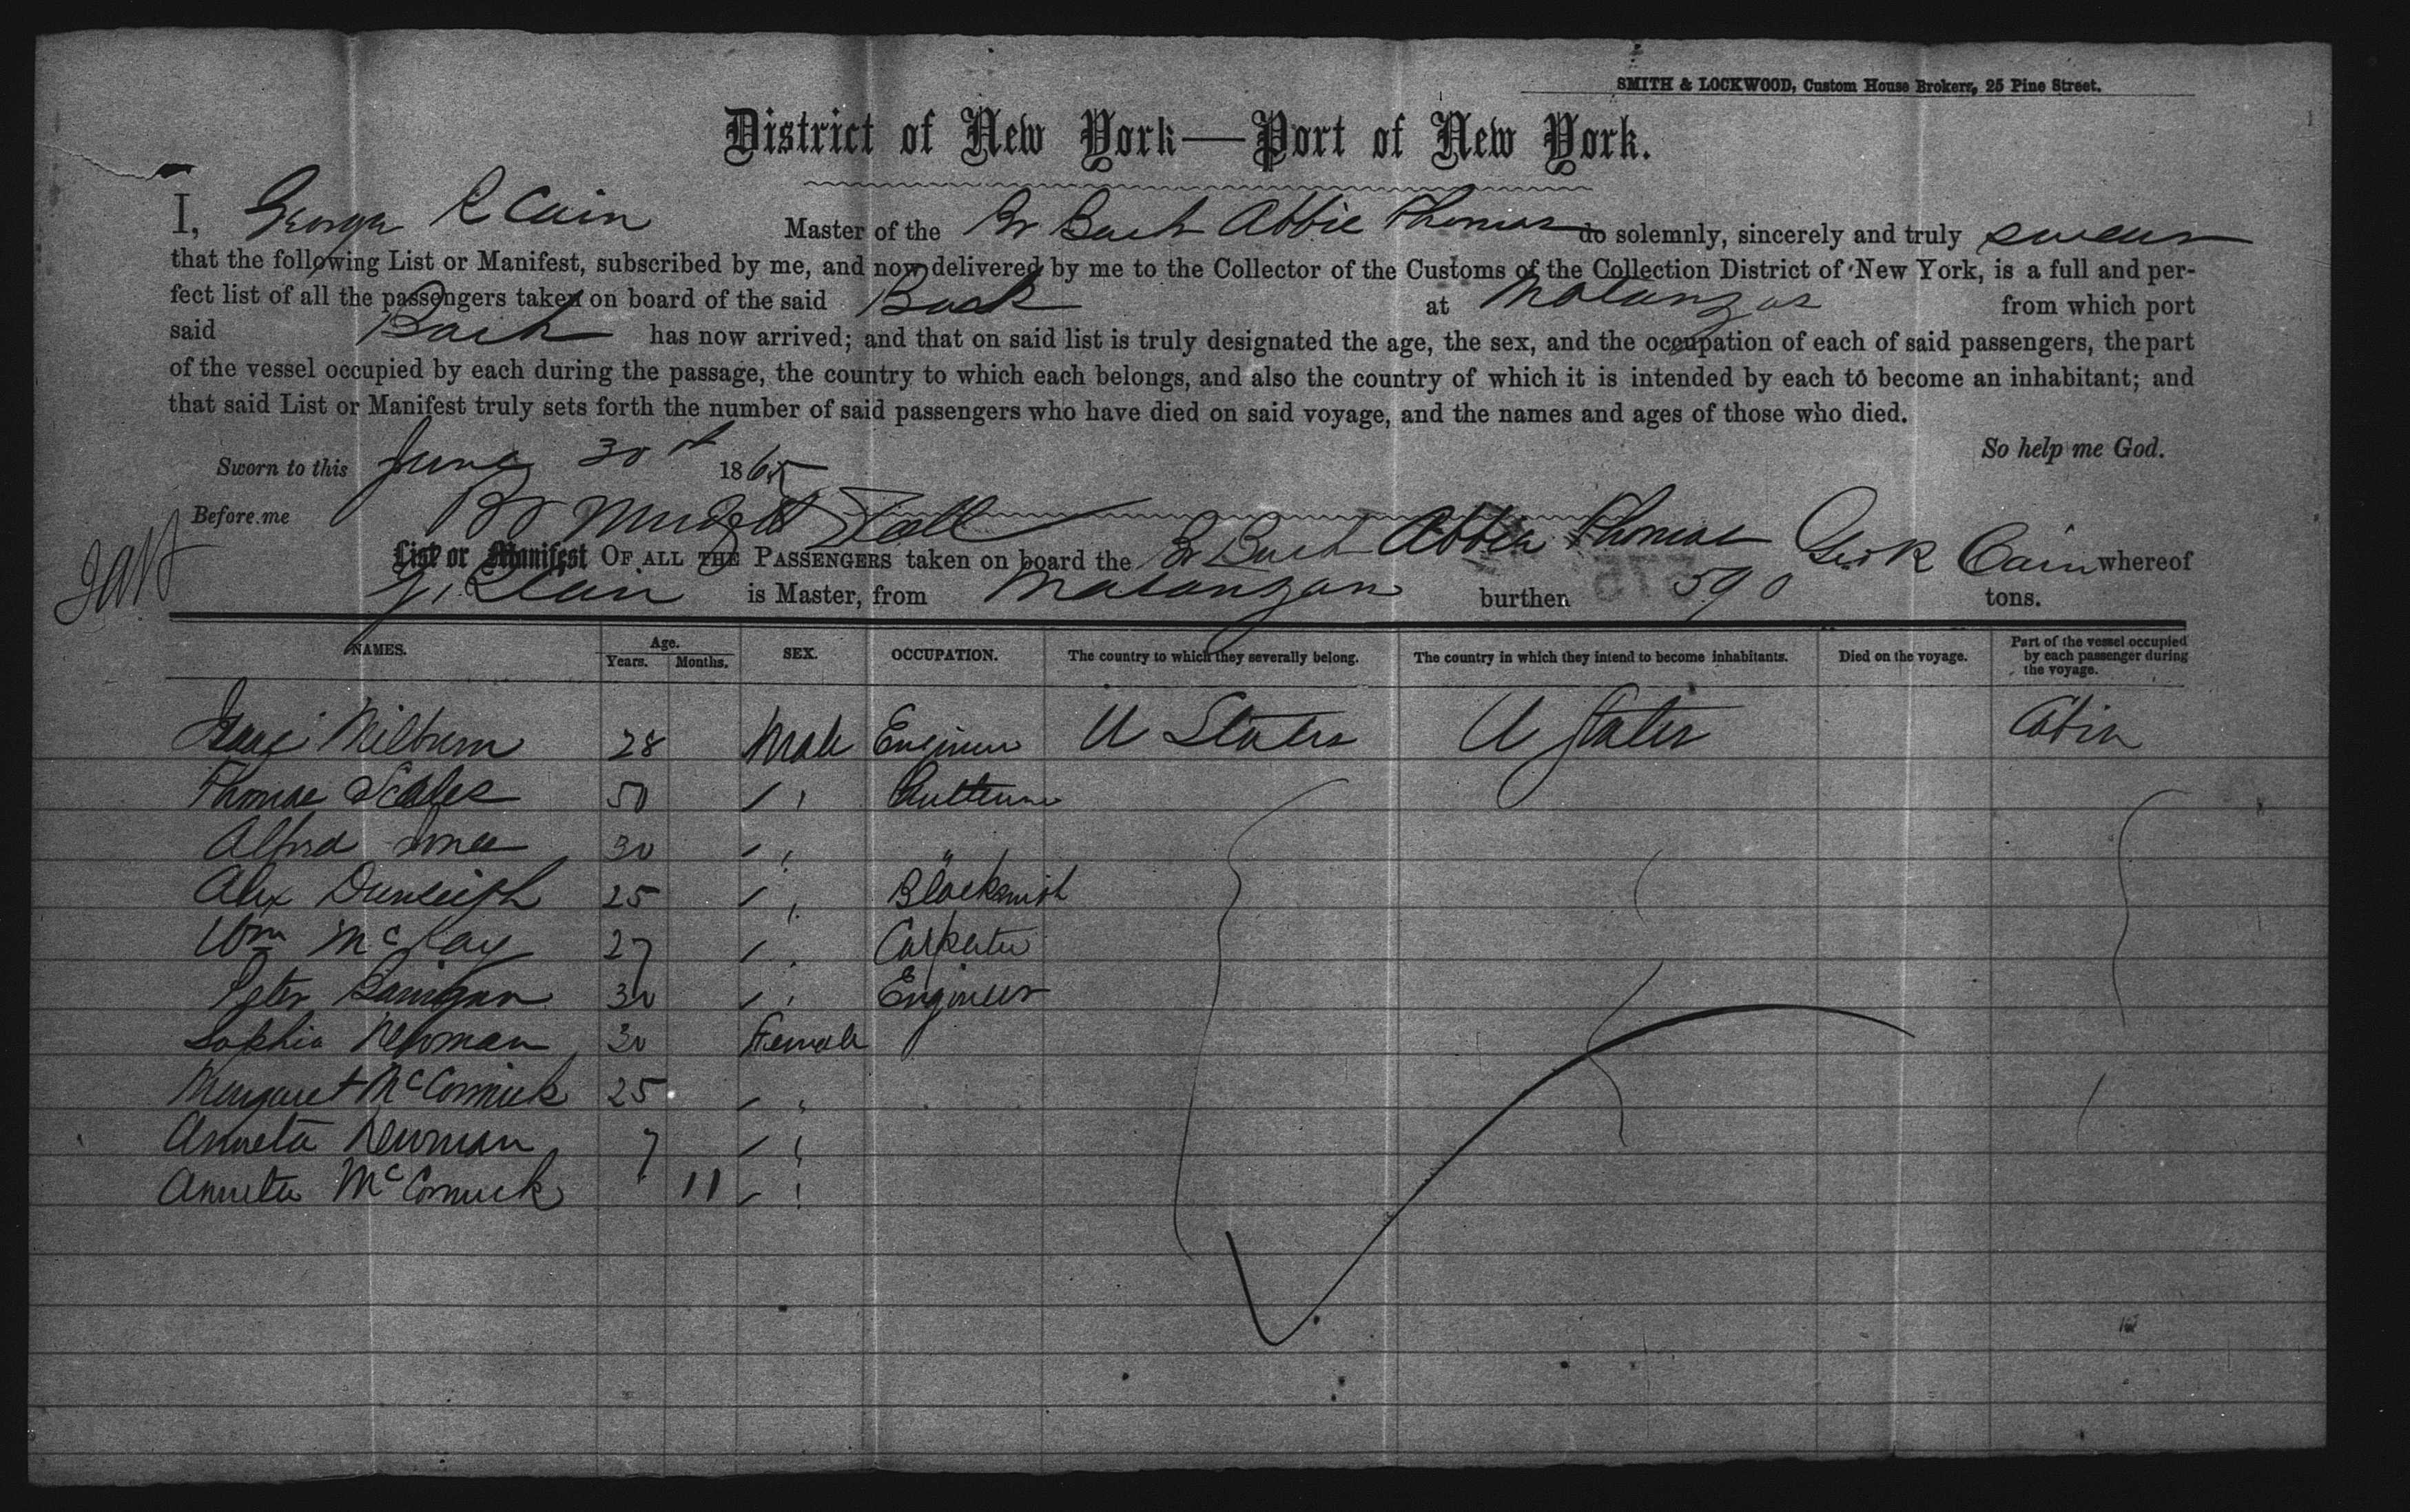 SMITH & LOCKWOOD, Custom House Brokers, 25 Pine Street.
District of New York—Port of New York.
I, George R Cain Master of the Br Bark Abbie Thomas do solemnly, sincerely and truly swear
that the following List or Manifest, subscribed by me, and now delivered by me to the Collector of the Customs of the Collection District of New York, is a full and per-
fect list of all the passengers taken on board of the said Bark at Matanzas from which port
said Bark has now arrived; and that on said list is truly designated the age, the sex, and the occupation of each of said passengers, the part
of the vessel occupied by each during the passage, the country to which each belongs, and also the country of which it is intended by each to become an inhabitant; and
that said List or Manifest truly sets forth the number of said passengers who have died on said voyage, and the names and ages of those who died.
So help me God.
Sworn to this June 30th 1865
Before me
List or Manifest OF ALL THE PASSENGERS taken on board the Br Bark Abbie Thomas Geo R Cain whereof
G. R. Cain is Master, from Matanzas burthen 590 tons.
NAMES. Age. Years. Months. SEX. OCCUPATION. The country to which they severally belong. The country in which they intend to become inhabitants. Died on the voyage. Part of the vessel occupied by each passenger during the voyage.
Isaac Milburn 28 Male Engineer U States U States Cabin
Thomas Scales 50 " 
Alfred Jones 30 " "
Alex 25 " Blacksmith
Wm McKay 27 " Carpenter
Peter 30 " Engineer
Sophia Newman 30 Female
Margaret McCormick 25 "
Anneta Newman 7 "
Anneta McCormick 11 "